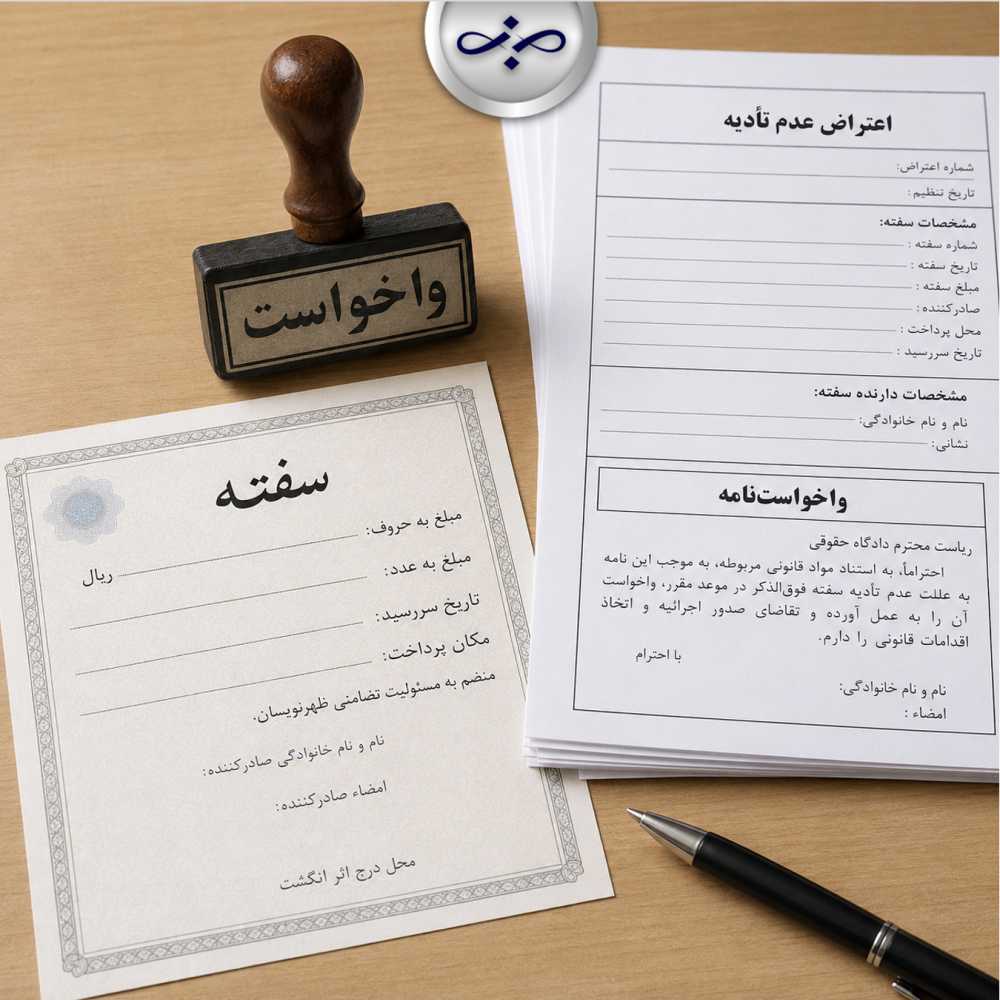 واخواست
سفته
مبلغ به حروف:
ریال
مبلغ به عدد:
تاریخ سررسید:
مکان پرداخت:
منضم به مسئولیت تضامنی ظهرنویسان.
نام و نام خانوادگی صادرکننده:
امضاء صادرکننده:
محل درج اثر انگشت
اعتراض عدم تأدیه
شماره اعتراض:
تاریخ تنظیم:
مشخصات سفته:
شماره سفته :
تاریخ سفته :
مبلغ سفته :
صادرکننده :
محل پرداخت :
تاریخ سررسید :
مشخصات دارنده سفته:
نام و نام خانوادگی:
نشانی:
واخواست‌نامه
ریاست محترم دادگاه حقوقی
احتراماً، به استناد مواد قانونی مربوطه، به موجب این نامه
به عللت عدم تأدیه سفته فوق‌الذکر در موعد مقرر، واخواست
آن را به عمل آورده و تقاضای صدور اجرائیه و اتخاذ
اقدامات قانونی را دارم.
با احترام
نام و نام خانوادگی:
امضاء :